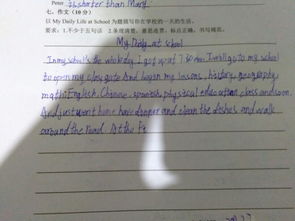 Peter is shorter than Mary.
七、作文(10分)
以 My Daily Life at School 为题描写你在学校的一天的生活。
要求：1.不少于五句话 2.条理清楚，意思连贯，标点正确，书写规范。
My Daily at school
In my school's the whole day. I got up at 7:30 am. I will go to my school
to open my class gate And began my lessons, history, geography
math English. Chinese. spanish, physical education class and soon.
And just went home have danper and clean the dishes and walk
around the road. At the